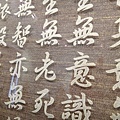 至無意識
至無老死
無智亦無